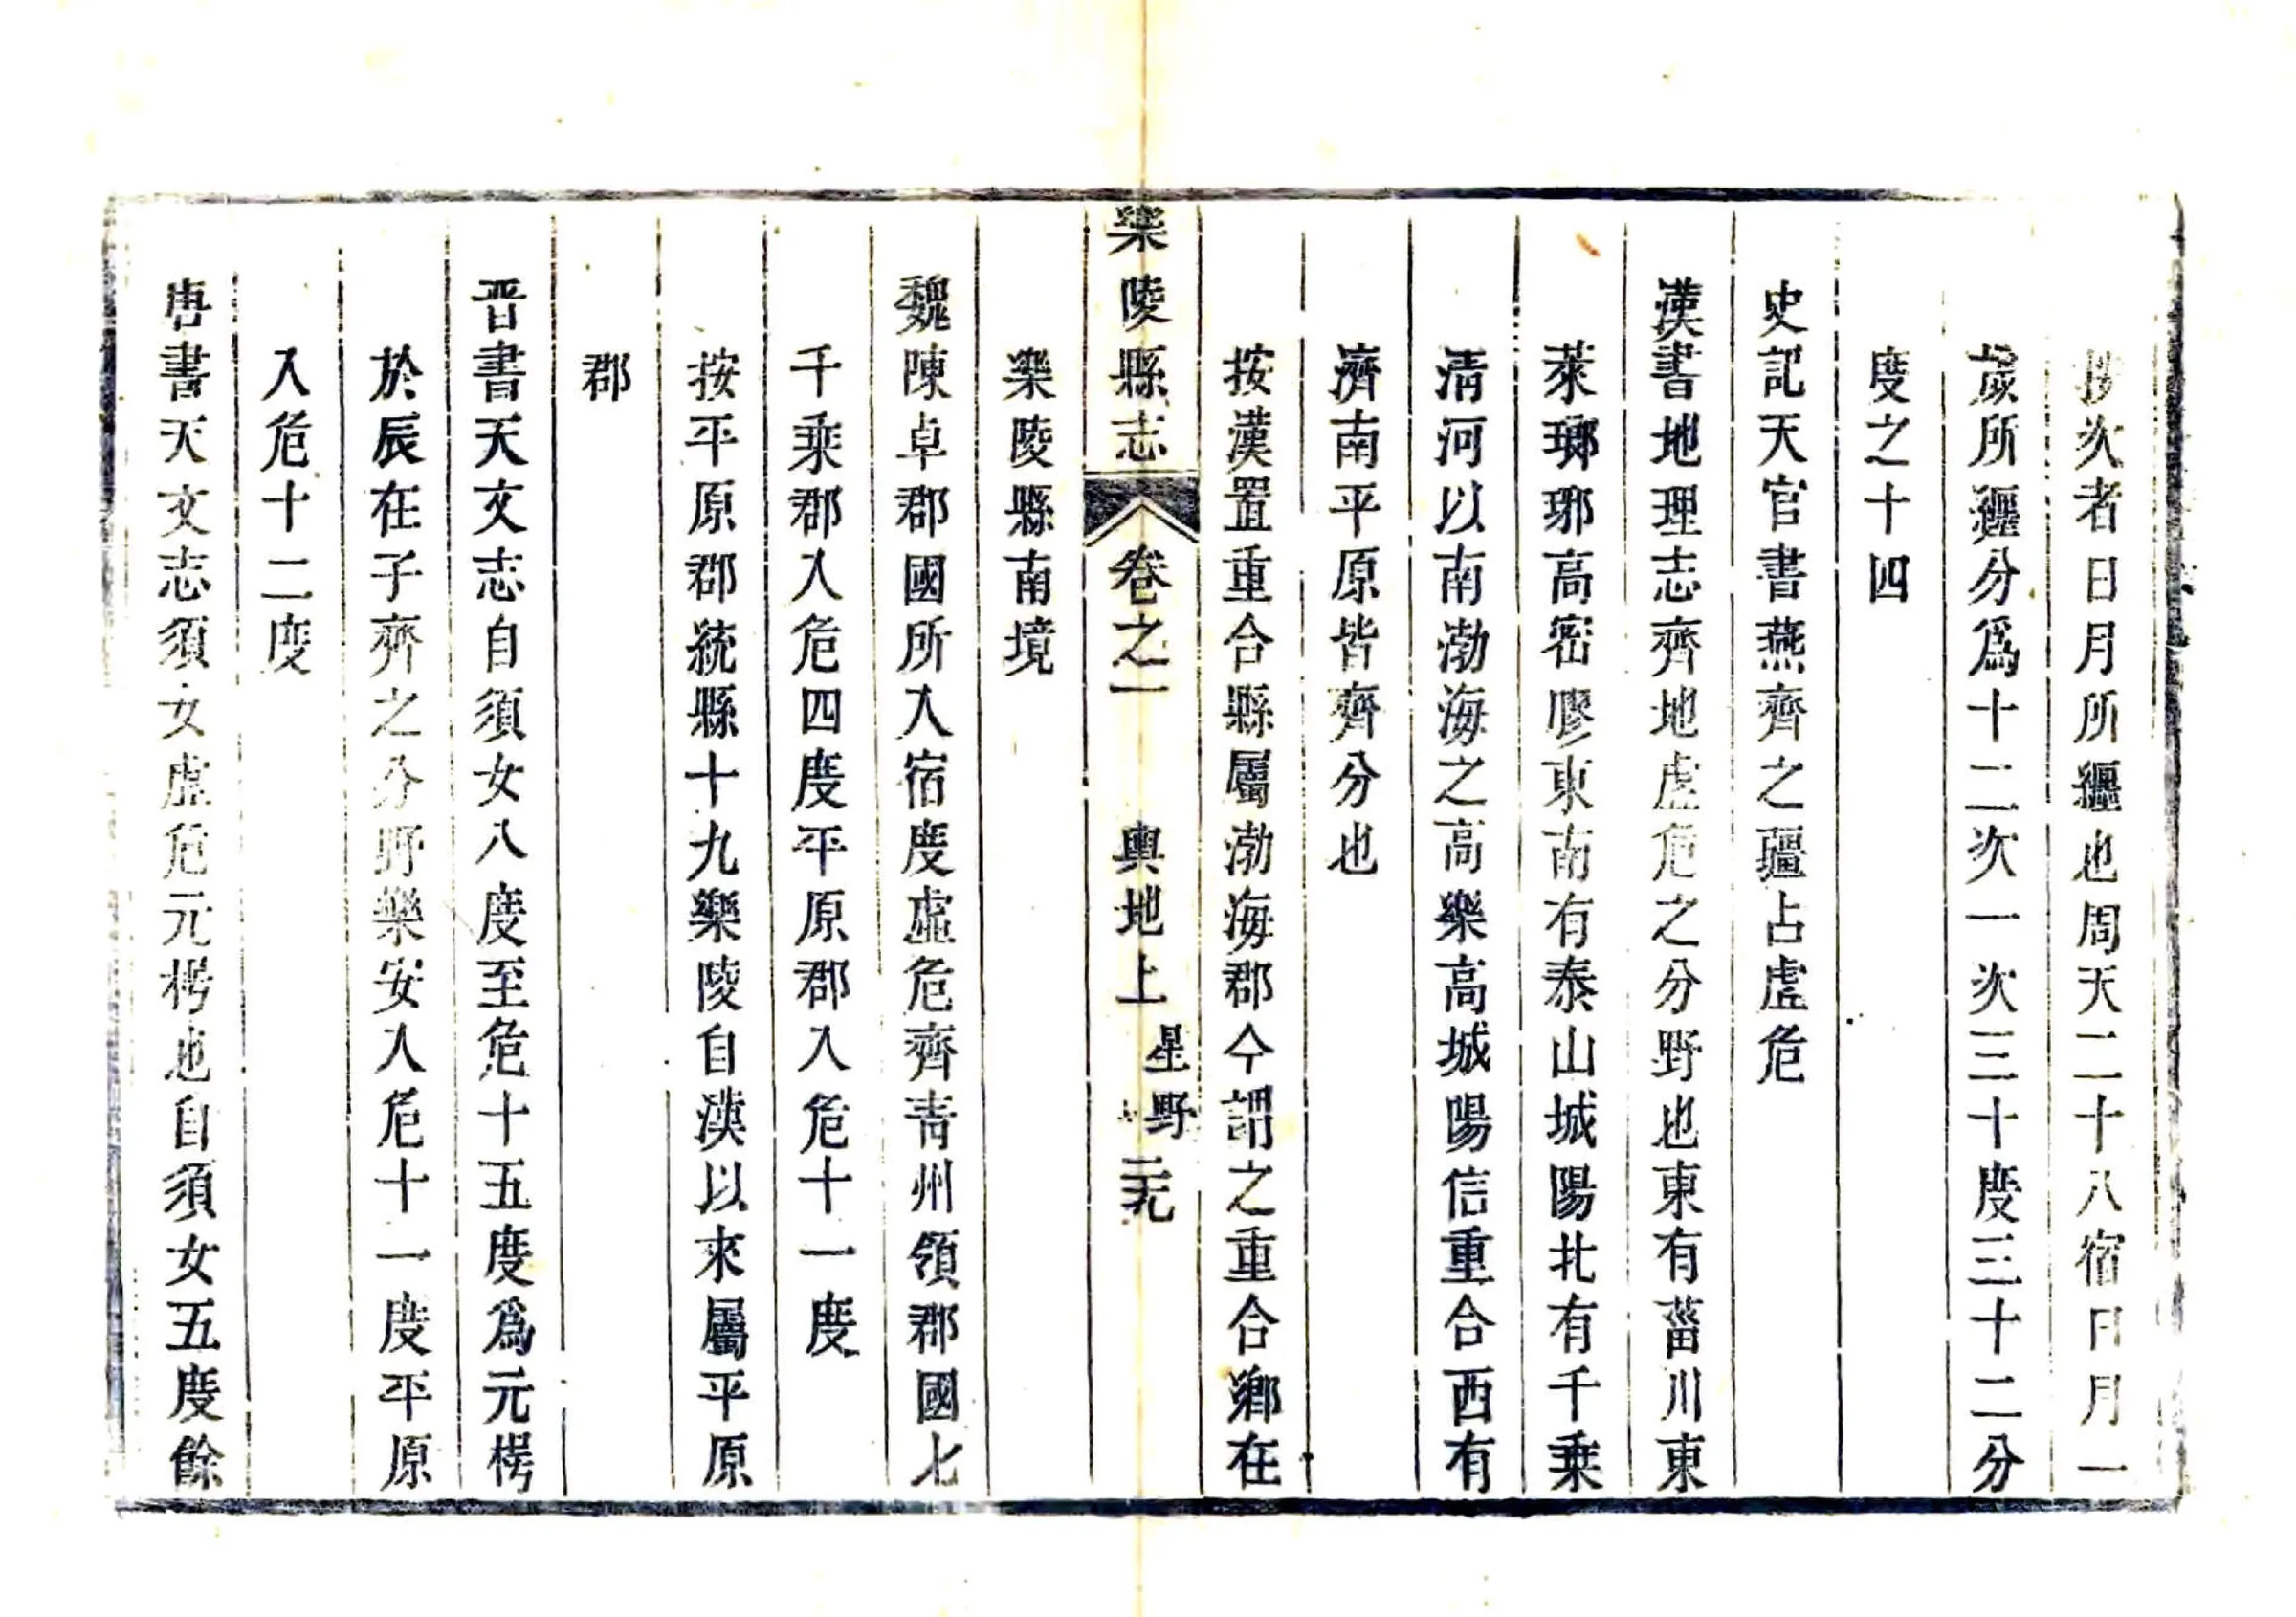 按次者日月所纏也周天二十八宿日月一
歲所纏分爲十二次一次三十度三十二分
度之十四
史記天官書燕齊之疆占虛危
漢書地理志齊地虛危之分野也東有菑川東
萊瑯琊高密膠東南有泰山城陽北有千乗
清河以南渤海之高樂高城陽信重合西有
濟南平原皆齊分也
按漢置重合縣屬渤海郡今謂之重合鄉在
樂陵縣志 卷之一 輿地上 星野 二九
樂陵縣南境
魏陳卓郡國所入宿度虛危齊青州領郡國七
千乗郡入危四度平原郡入危十一度
按平原郡統縣十九樂陵自漢以來屬平原
郡
晋書天文志自須女八度至危十五度爲元枵
於辰在子齊之分野樂安入危十一度平原
入危十二度
唐書天文志須女虛危元枵也自須女五度餘